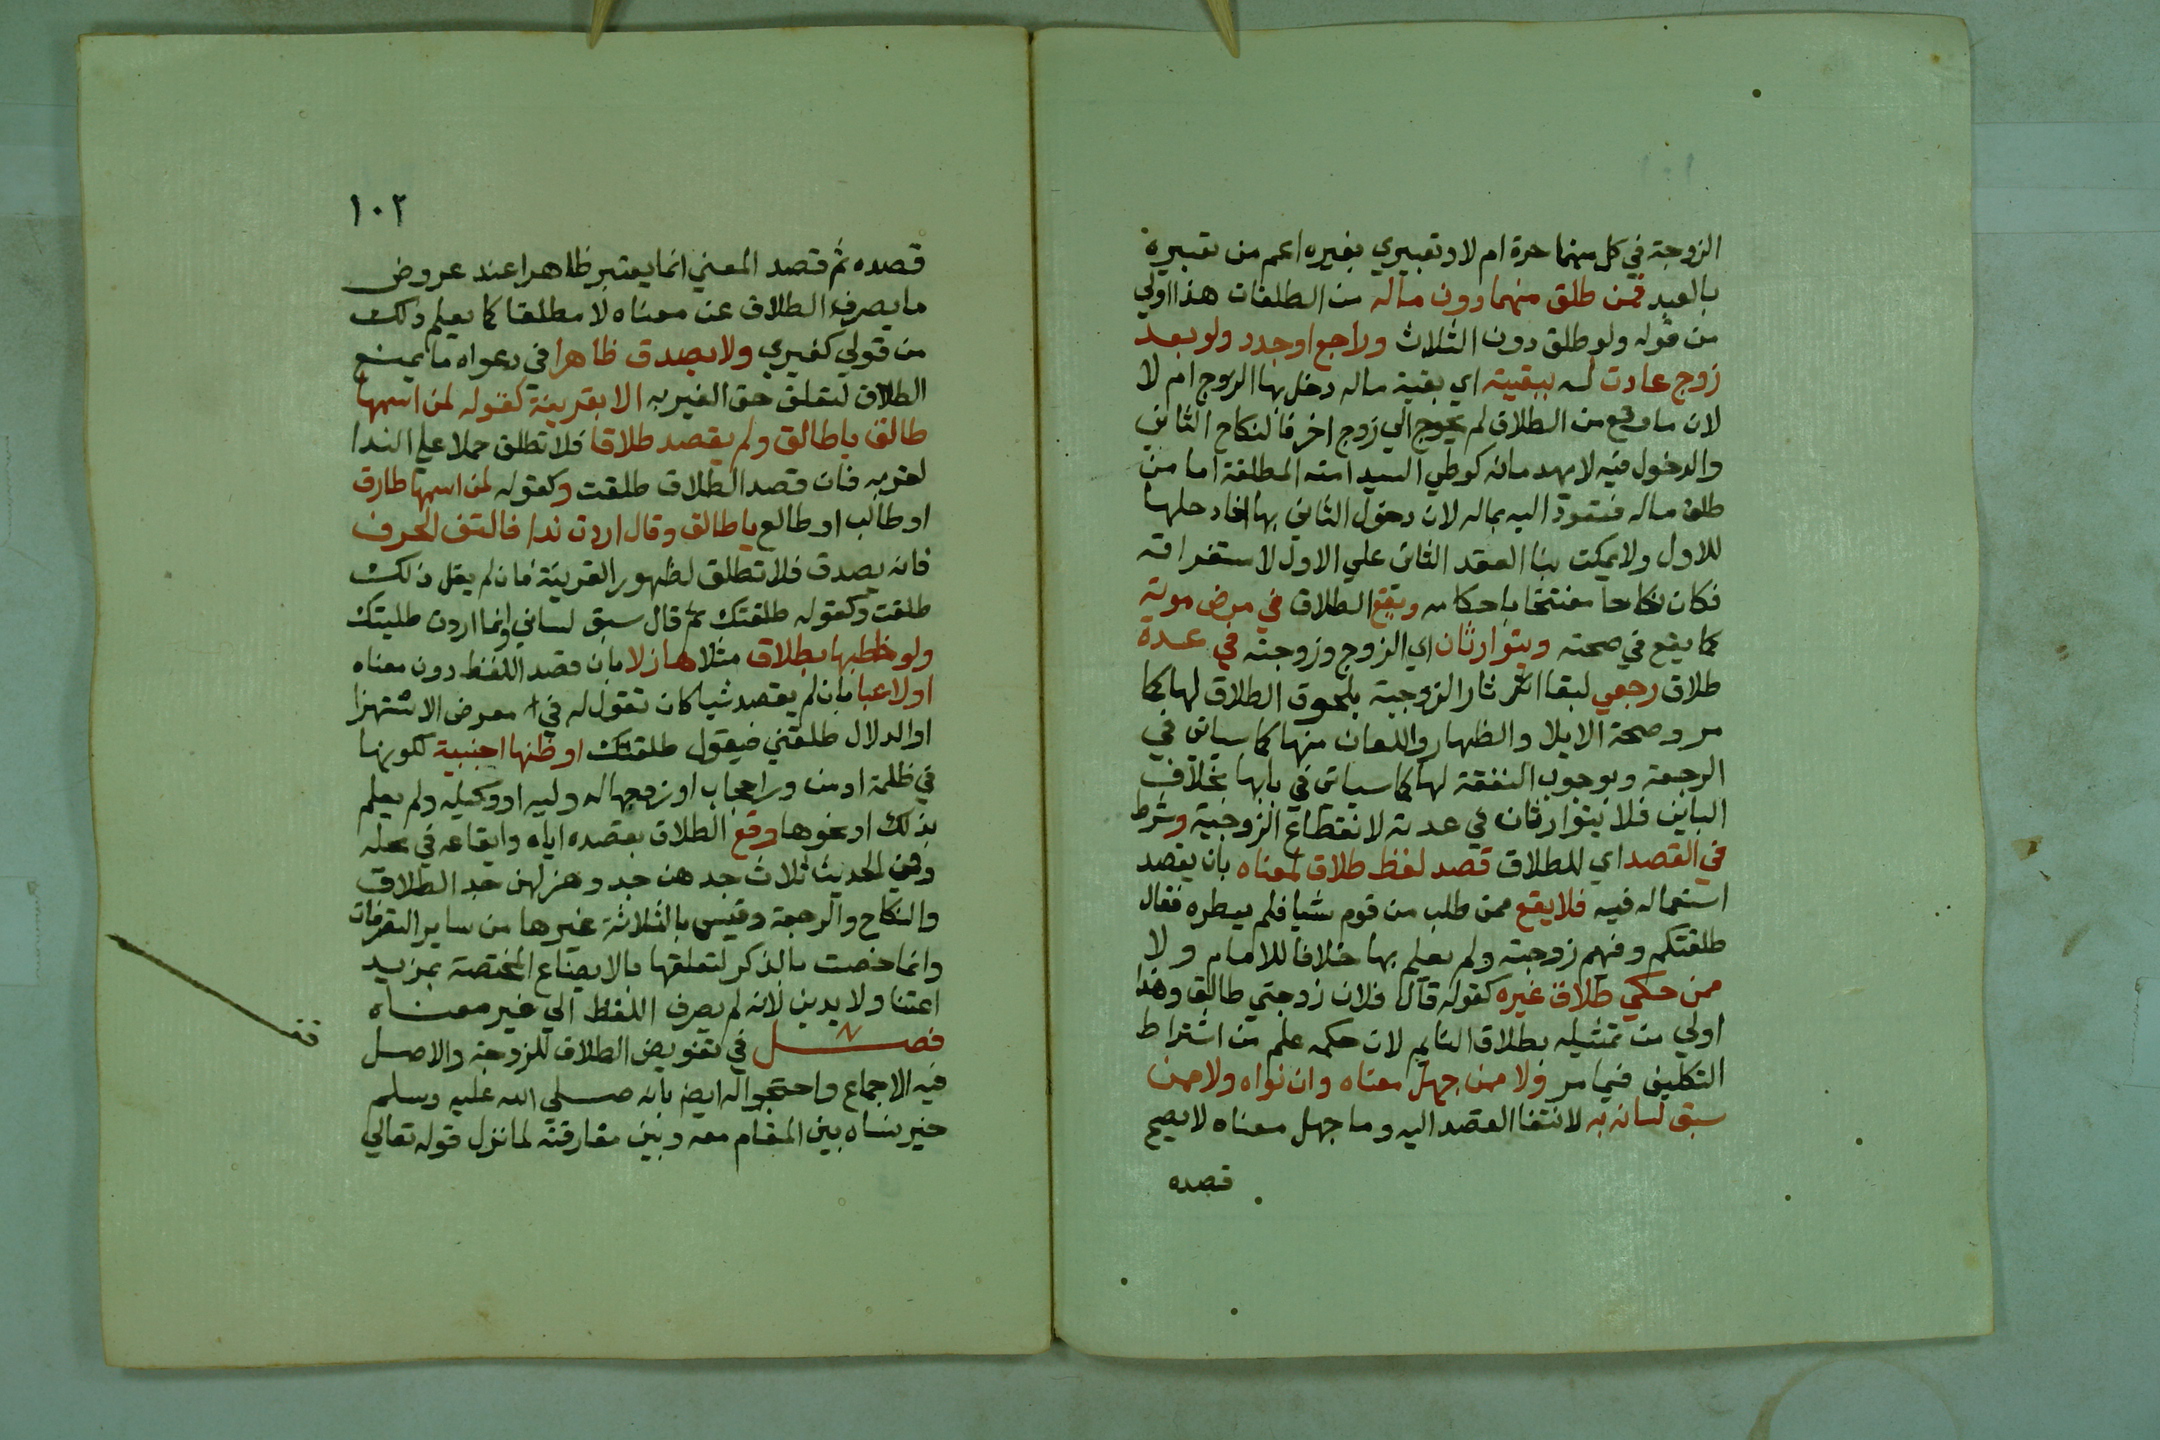 الزوجة في كل منهما حرة ام لا وتعبيري بغيره اعم من تعبيره
بالعبد فمن طلق منهما دون ماله من الطلقات هذا اولي
من قوله ولو طلق دون الثلاث وراجع او جدد ولو بعد
زوج عادت له ببقيته اي بقية ماله دخل بها الزوج ام لا
لان ما وقع من الطلاق لم يحوج الي زوج اخر فالنكاح الثاني
والدخول فيه لا يهدمانه كوطي السيد امته المطلقة اما من
طلق ماله فتعود اليه بماله لان دخول الثاني بها افاد حلها
للاول ولا يمكن بنا العقد الثاني علي الاول لاستغراقه
فكان نكاحا مفتتحا باحكامه ويقع الطلاق في مرض موته
كما يقع في صحته ويتوارثان اي الزوج وزوجته في عدة
طلاق رجعي لبقا اثار الزوجية بلحوق الطلاق لها كما
مر وصحة الايلا والظهار واللعان منها كما سياتي في
الرجعة وبوجوب النفقة لها كما سياتي في بابها بخلاف
الباين فلا يتوارثان في عدته لانقطاع الزوجية وشرط
في القصد اي للطلاق قصد لفظ طلاق لمعناه بان يقصد
استعماله فيه فلا يقع ممن طلب من قوم شيا فلم يعطوه فقال
طلقتكم وفيهم زوجته ولم يعلم بها خلافا للامام ولا
ممن حكي طلاق غيره كقوله قال فلان زوجتي طالق وهذا
اولي من تمثيله بطلاق النايم لان حكمه علم من اشتراط
التكليف فيما مر ولا ممن جهل معناه وان نواه ولا ممن
سبق لسانه به لانتفا القصد اليه وما جهل معناه لا يصح
قصده
١٠٢
قصده ثم قصد المعني انما يعتبر ظاهرا عند عروض
ما يصرف الطلاق عن معناه لا مطلقا كما يعلم ذلك
من قولي كغيري ولا يصدق ظاهرا في دعواه ما يمنع
الطلاق لتعلق حق الغير به الا بقرينة كقوله لمن اسمها
طالق يا طالق ولم يقصد طلاقا فلا تطلق حملا علي الندا
لقربه فان قصد الطلاق طلقت وكقوله لمن اسمها طارق
او طالب او طالع يا طالق وقال اردت ندا فالتف الحرف
فانه يصدق فلا تطلق لظهور القرينة فان لم يقل ذلك
طلقت وكقوله طلقتك ثم قال سبق لساني وانما اردت طلبتك
ولو خاطبها بطلاق مثلا هازلا بان قصد اللفظ دون معناه
او لاعبا بان لم يقصد شيا كان تقول له في معرض الاستهزا
او الدلال طلقني فيقول طلقتك او ظنها اجنبية لكونها
في ظلمة او من ورا حجاب او زوجها له وليه او وكيله ولم يعلم
بذلك او نحوها وقع الطلاق بقصده اياه وايقاعه في محله
وفي الحديث ثلاث جدهن جد وهزلهن جد الطلاق
والنكاح والرجعة وقيس بالثلاثة غيرها من ساير التصرفات
وانما خصت بالذكر لتعلقها بالابضاع المختصة بمزيد
اعتنا ولا يدين لانه لم يصرف اللفظ الي غير معناه
فصل في تفويض الطلاق للزوجة والاصل
فيه الاجماع واحتجوا له ايضا بانه صلى الله عليه وسلم
خير نساه بين المقام معه وبين مفارقته لما نزل قوله تعالي